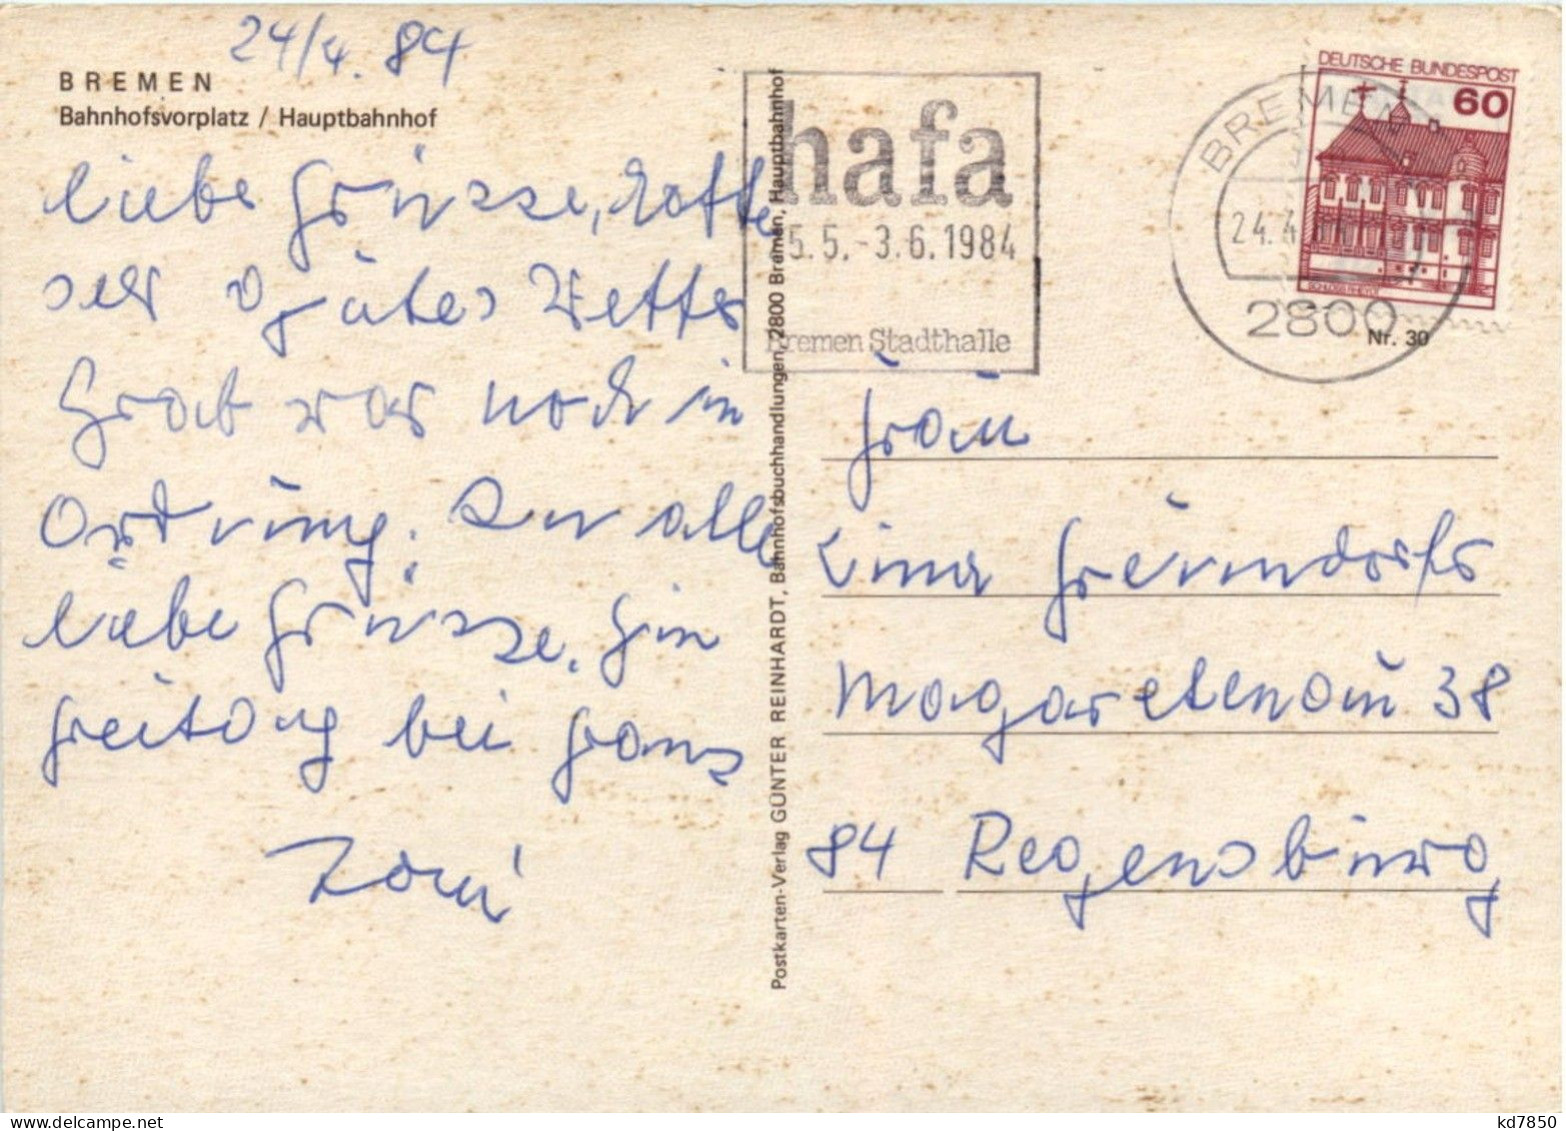 24/4. 84
BREMEN
Bahnhofsvorplatz / Hauptbahnhof
liebe Grüsse, hatte
sehr gutes Wetter
Grab war noch in
Ordnung. An alle
liebe Grüsse. Bin
bei
Toni
hafa
5.5.-3.6.1984
Bremen Stadthalle
Postkarten-Verlag GÜNTER REINHARDT, Bahnhofsbuchhandlungen, 2800 Bremen, Hauptbahnhof
BREMEN
24.4
2800
DEUTSCHE BUNDESPOST
60
SCHLOSS RHEYDT
Nr. 30
Frau
Magaretenau 38
84 Regensburg
kd7850